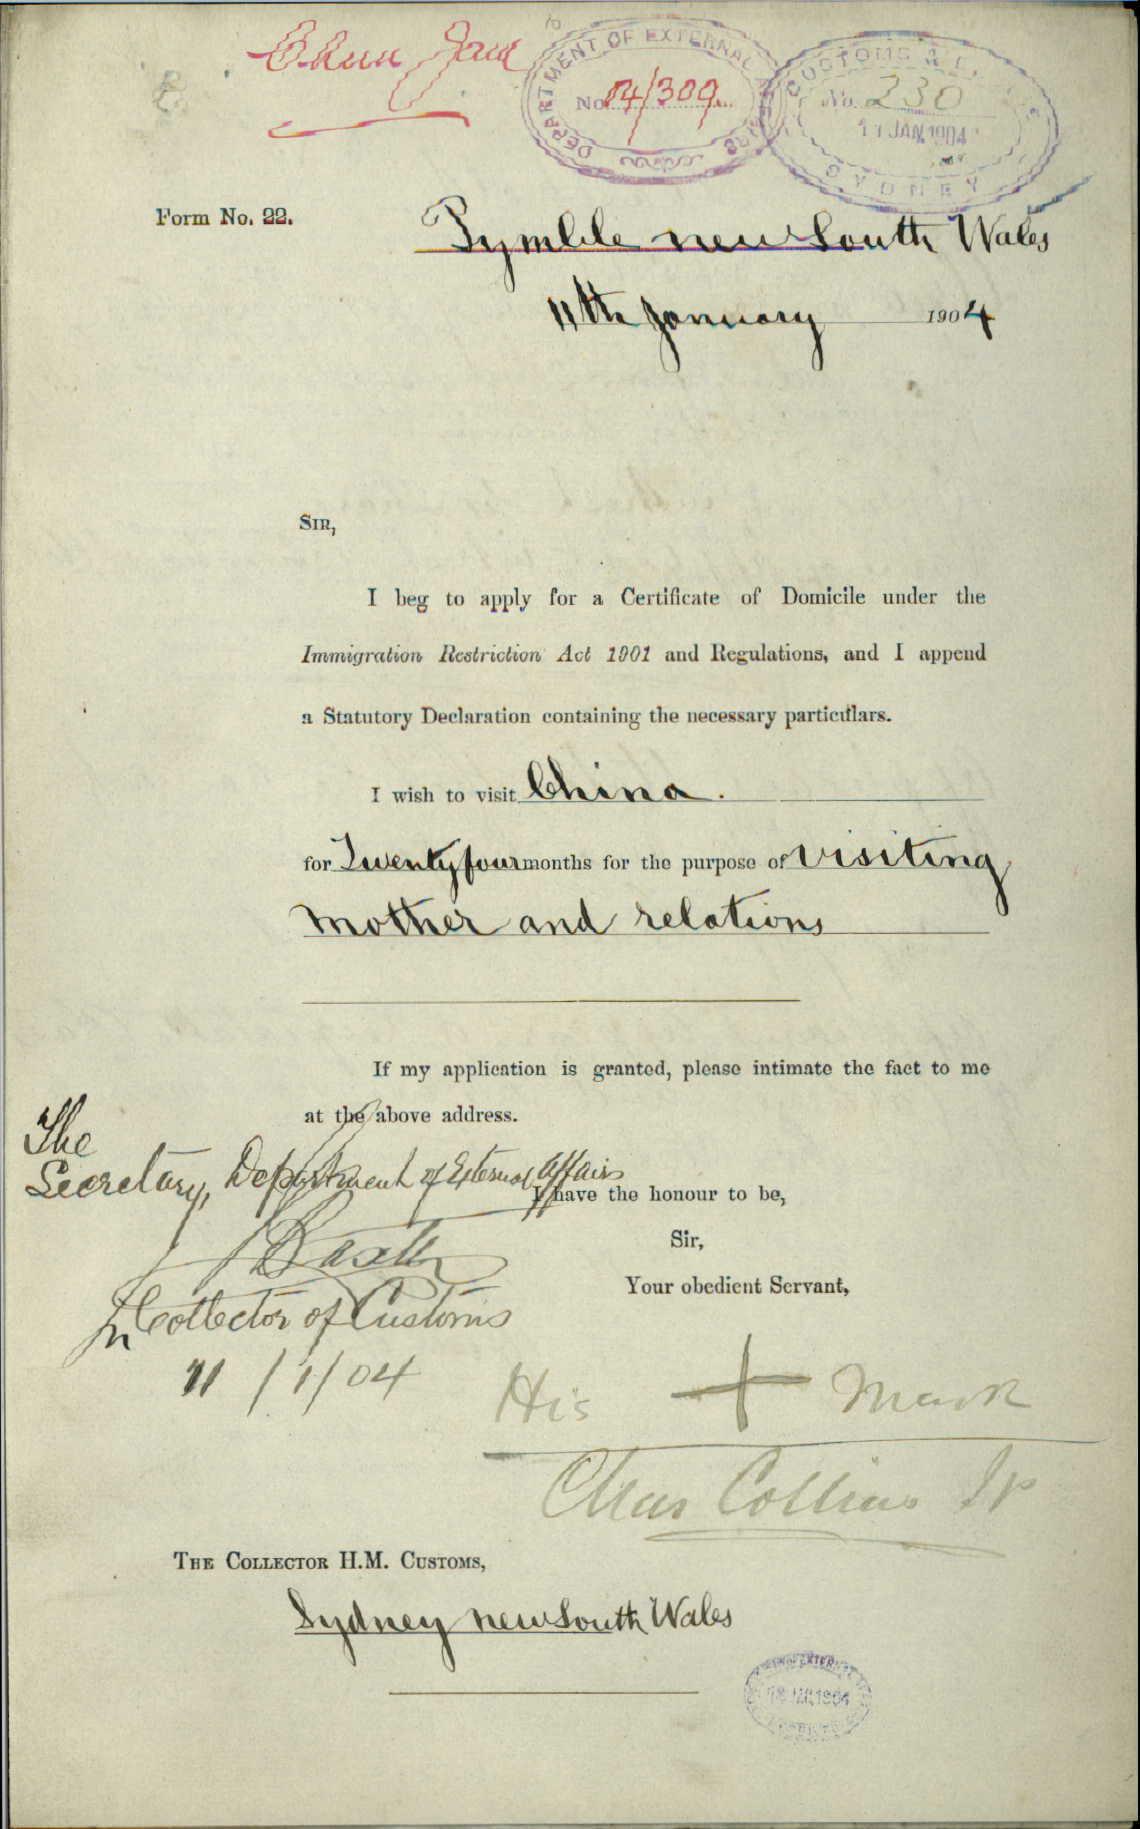 Chun Jack
DEPARTMENT OF EXTERNAL AFFAIRS
No. 04/309
CUSTOMS
No. 230
11 JAN 1904
SYDNEY
Form No. 22.
Pymble new South Wales
11th January 1904
SIR,
I beg to apply for a Certificate of Domicile under the
Immigration Restriction Act 1901 and Regulations, and I append
a Statutory Declaration containing the necessary particulars.
I wish to visit China.
for Twenty four months for the purpose of visiting
mother and relations
If my application is granted, please intimate the fact to me
at the above address.
The
Secretary, Department of External Affairs
I have the honour to be,
Sir,
Baxter
Your obedient Servant,
Collector of Customs
11/1/04
His + Mark
Chas Collins JP
THE COLLECTOR H.M. CUSTOMS,
Sydney new South Wales
1904